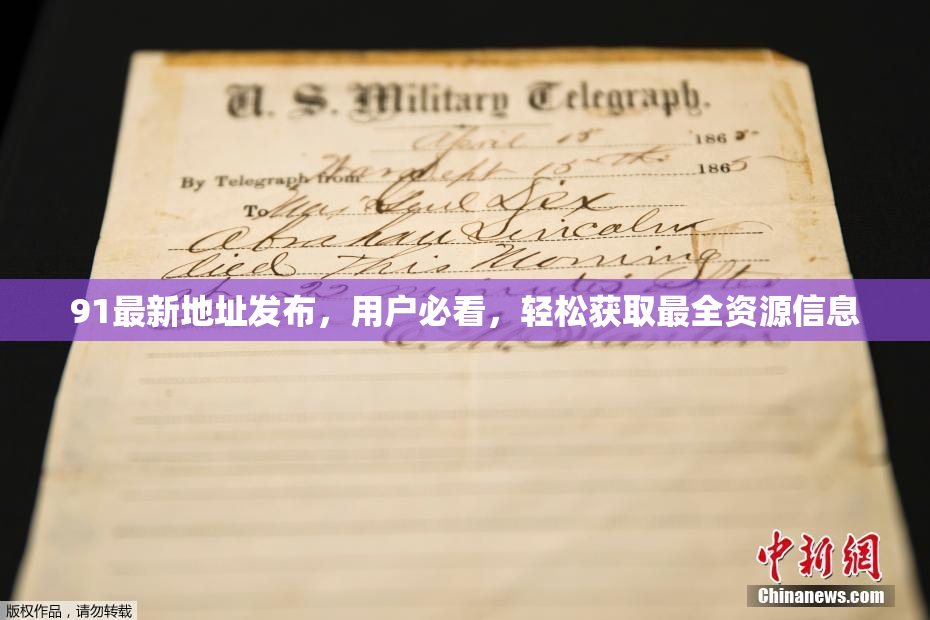 U. S. Military Telegraph.
April 15 1865
By Telegraph from War Dept 15th 1865
To Maj Genl Dix
Abraham Lincoln
died this Morning
at 22 minutes after
91最新地址发布，用户必看，轻松获取最全资源信息
E. M. Stanton
中新网
Chinanews.com
版权作品，请勿转载